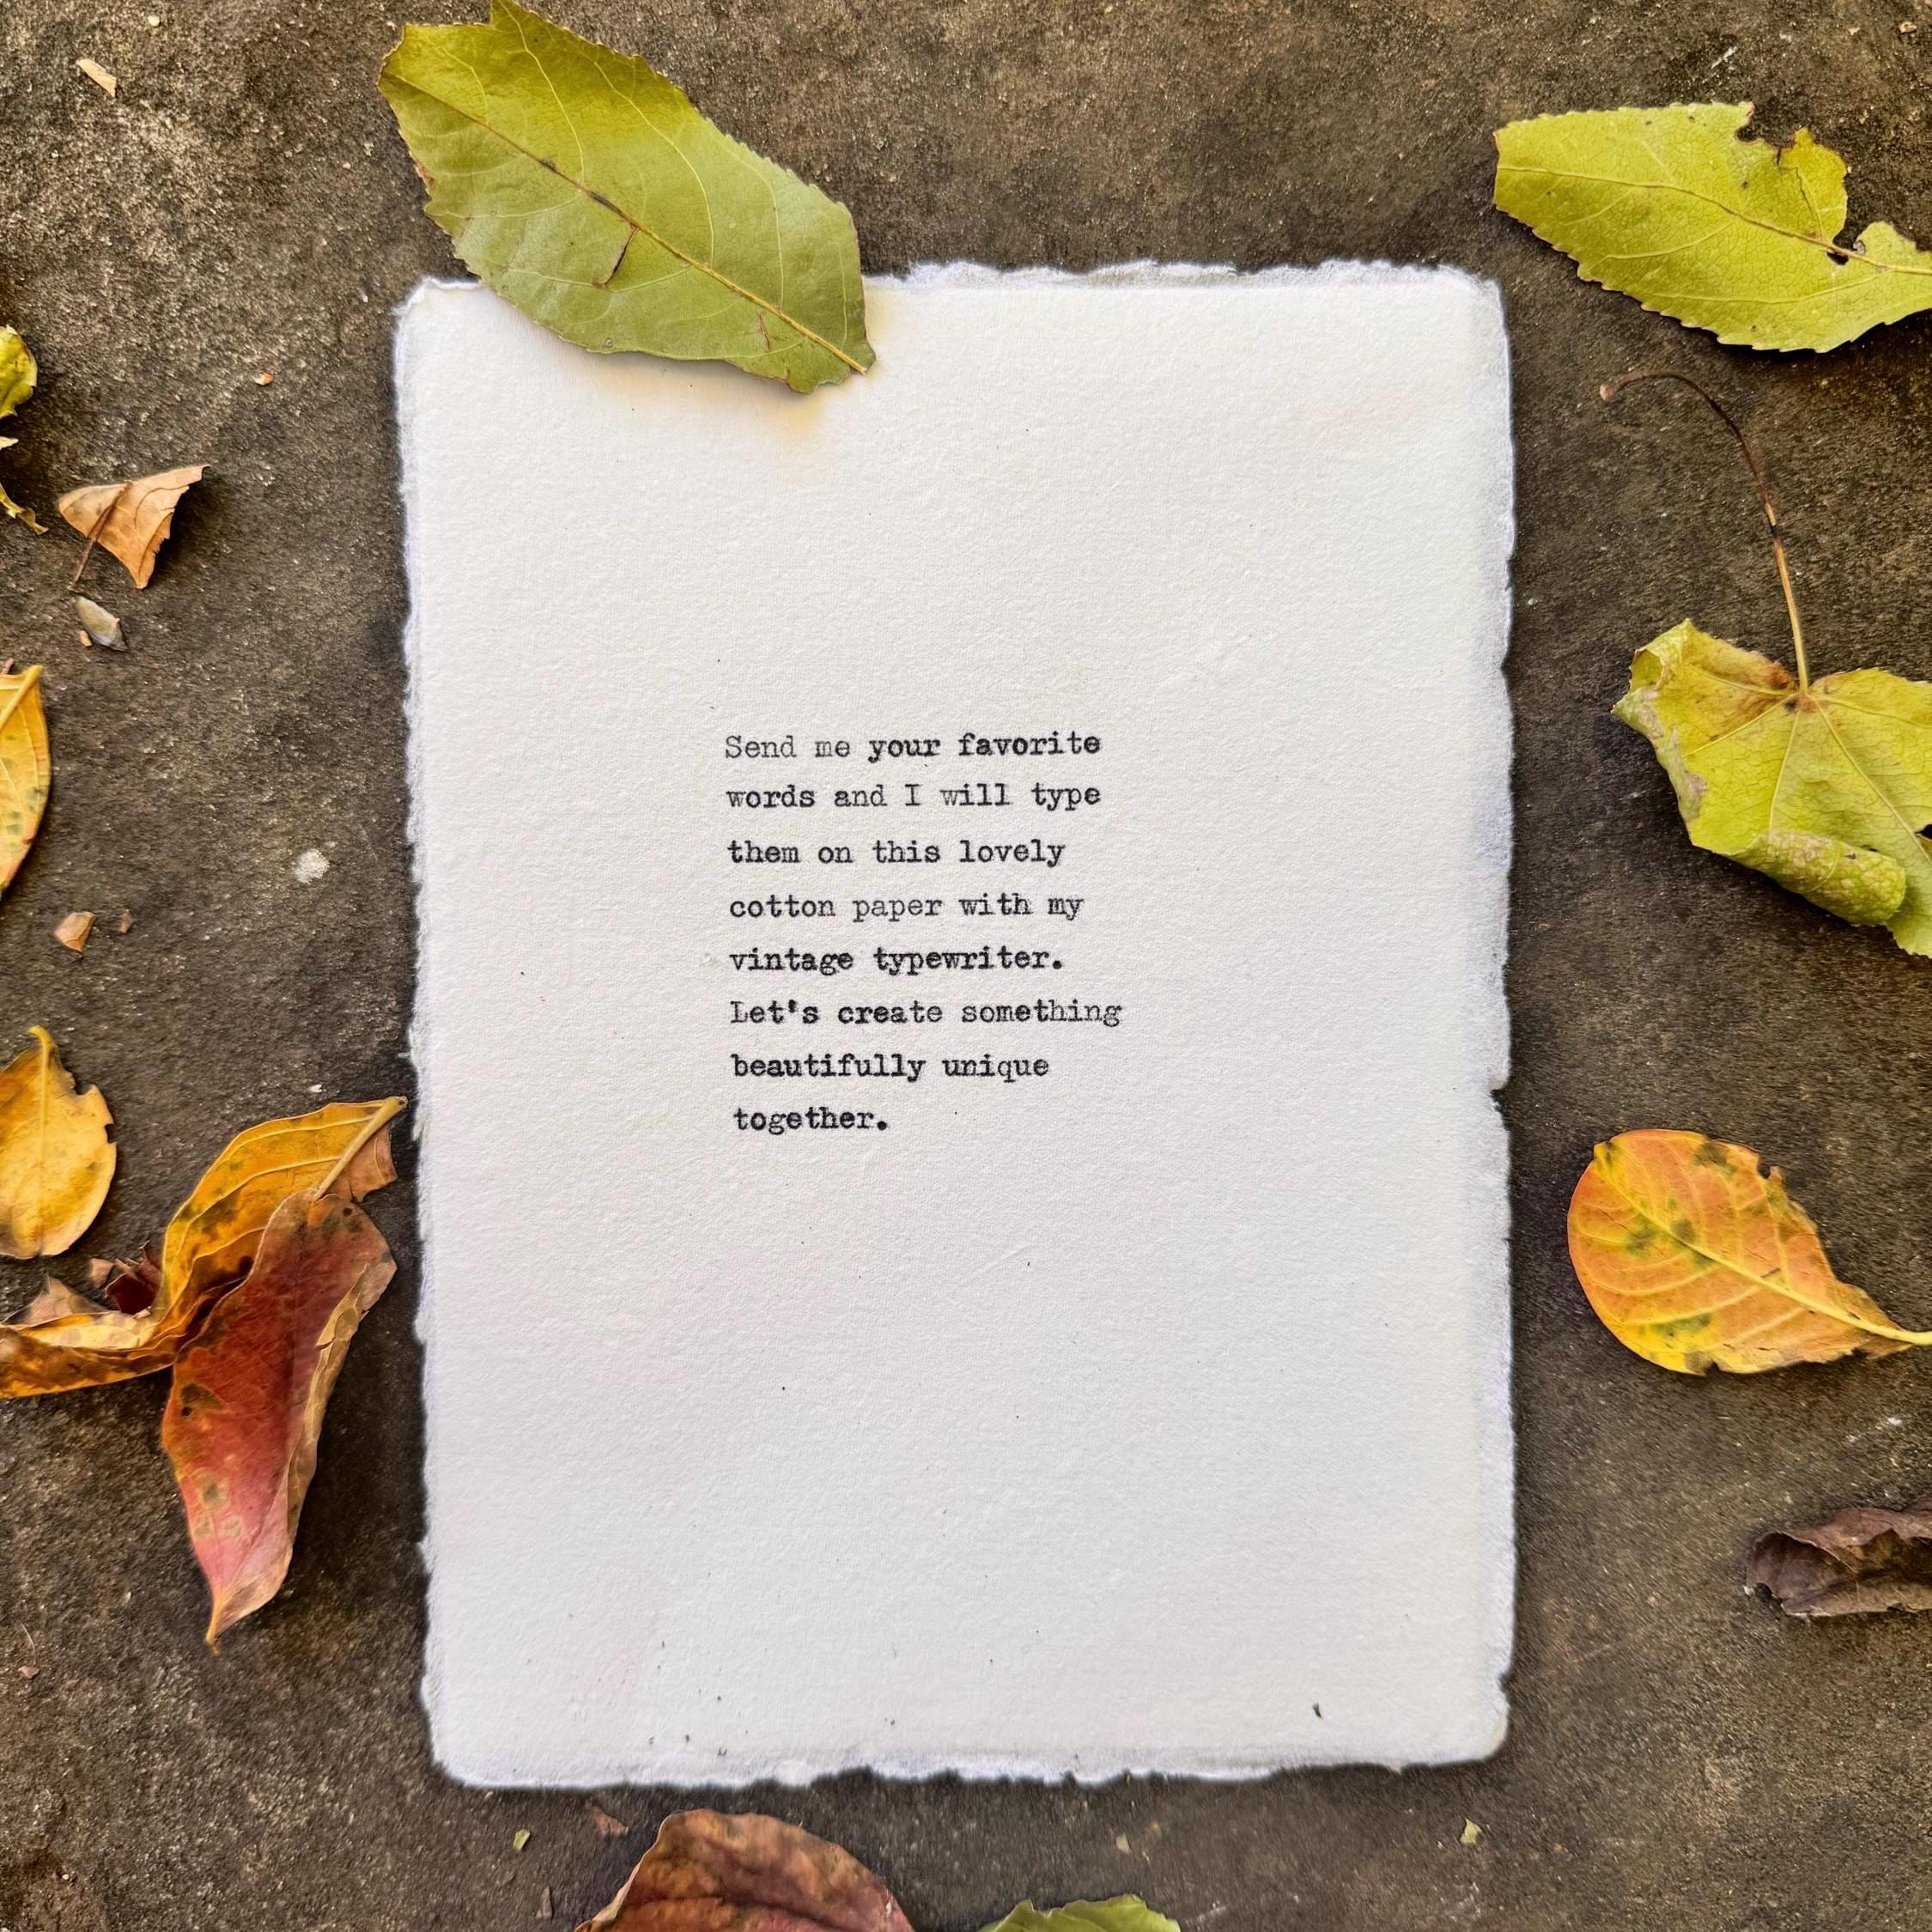 Send me your favorite
words and I will type
them on this lovely
cotton paper with my
vintage typewriter.
Let's create something
beautifully unique
together.